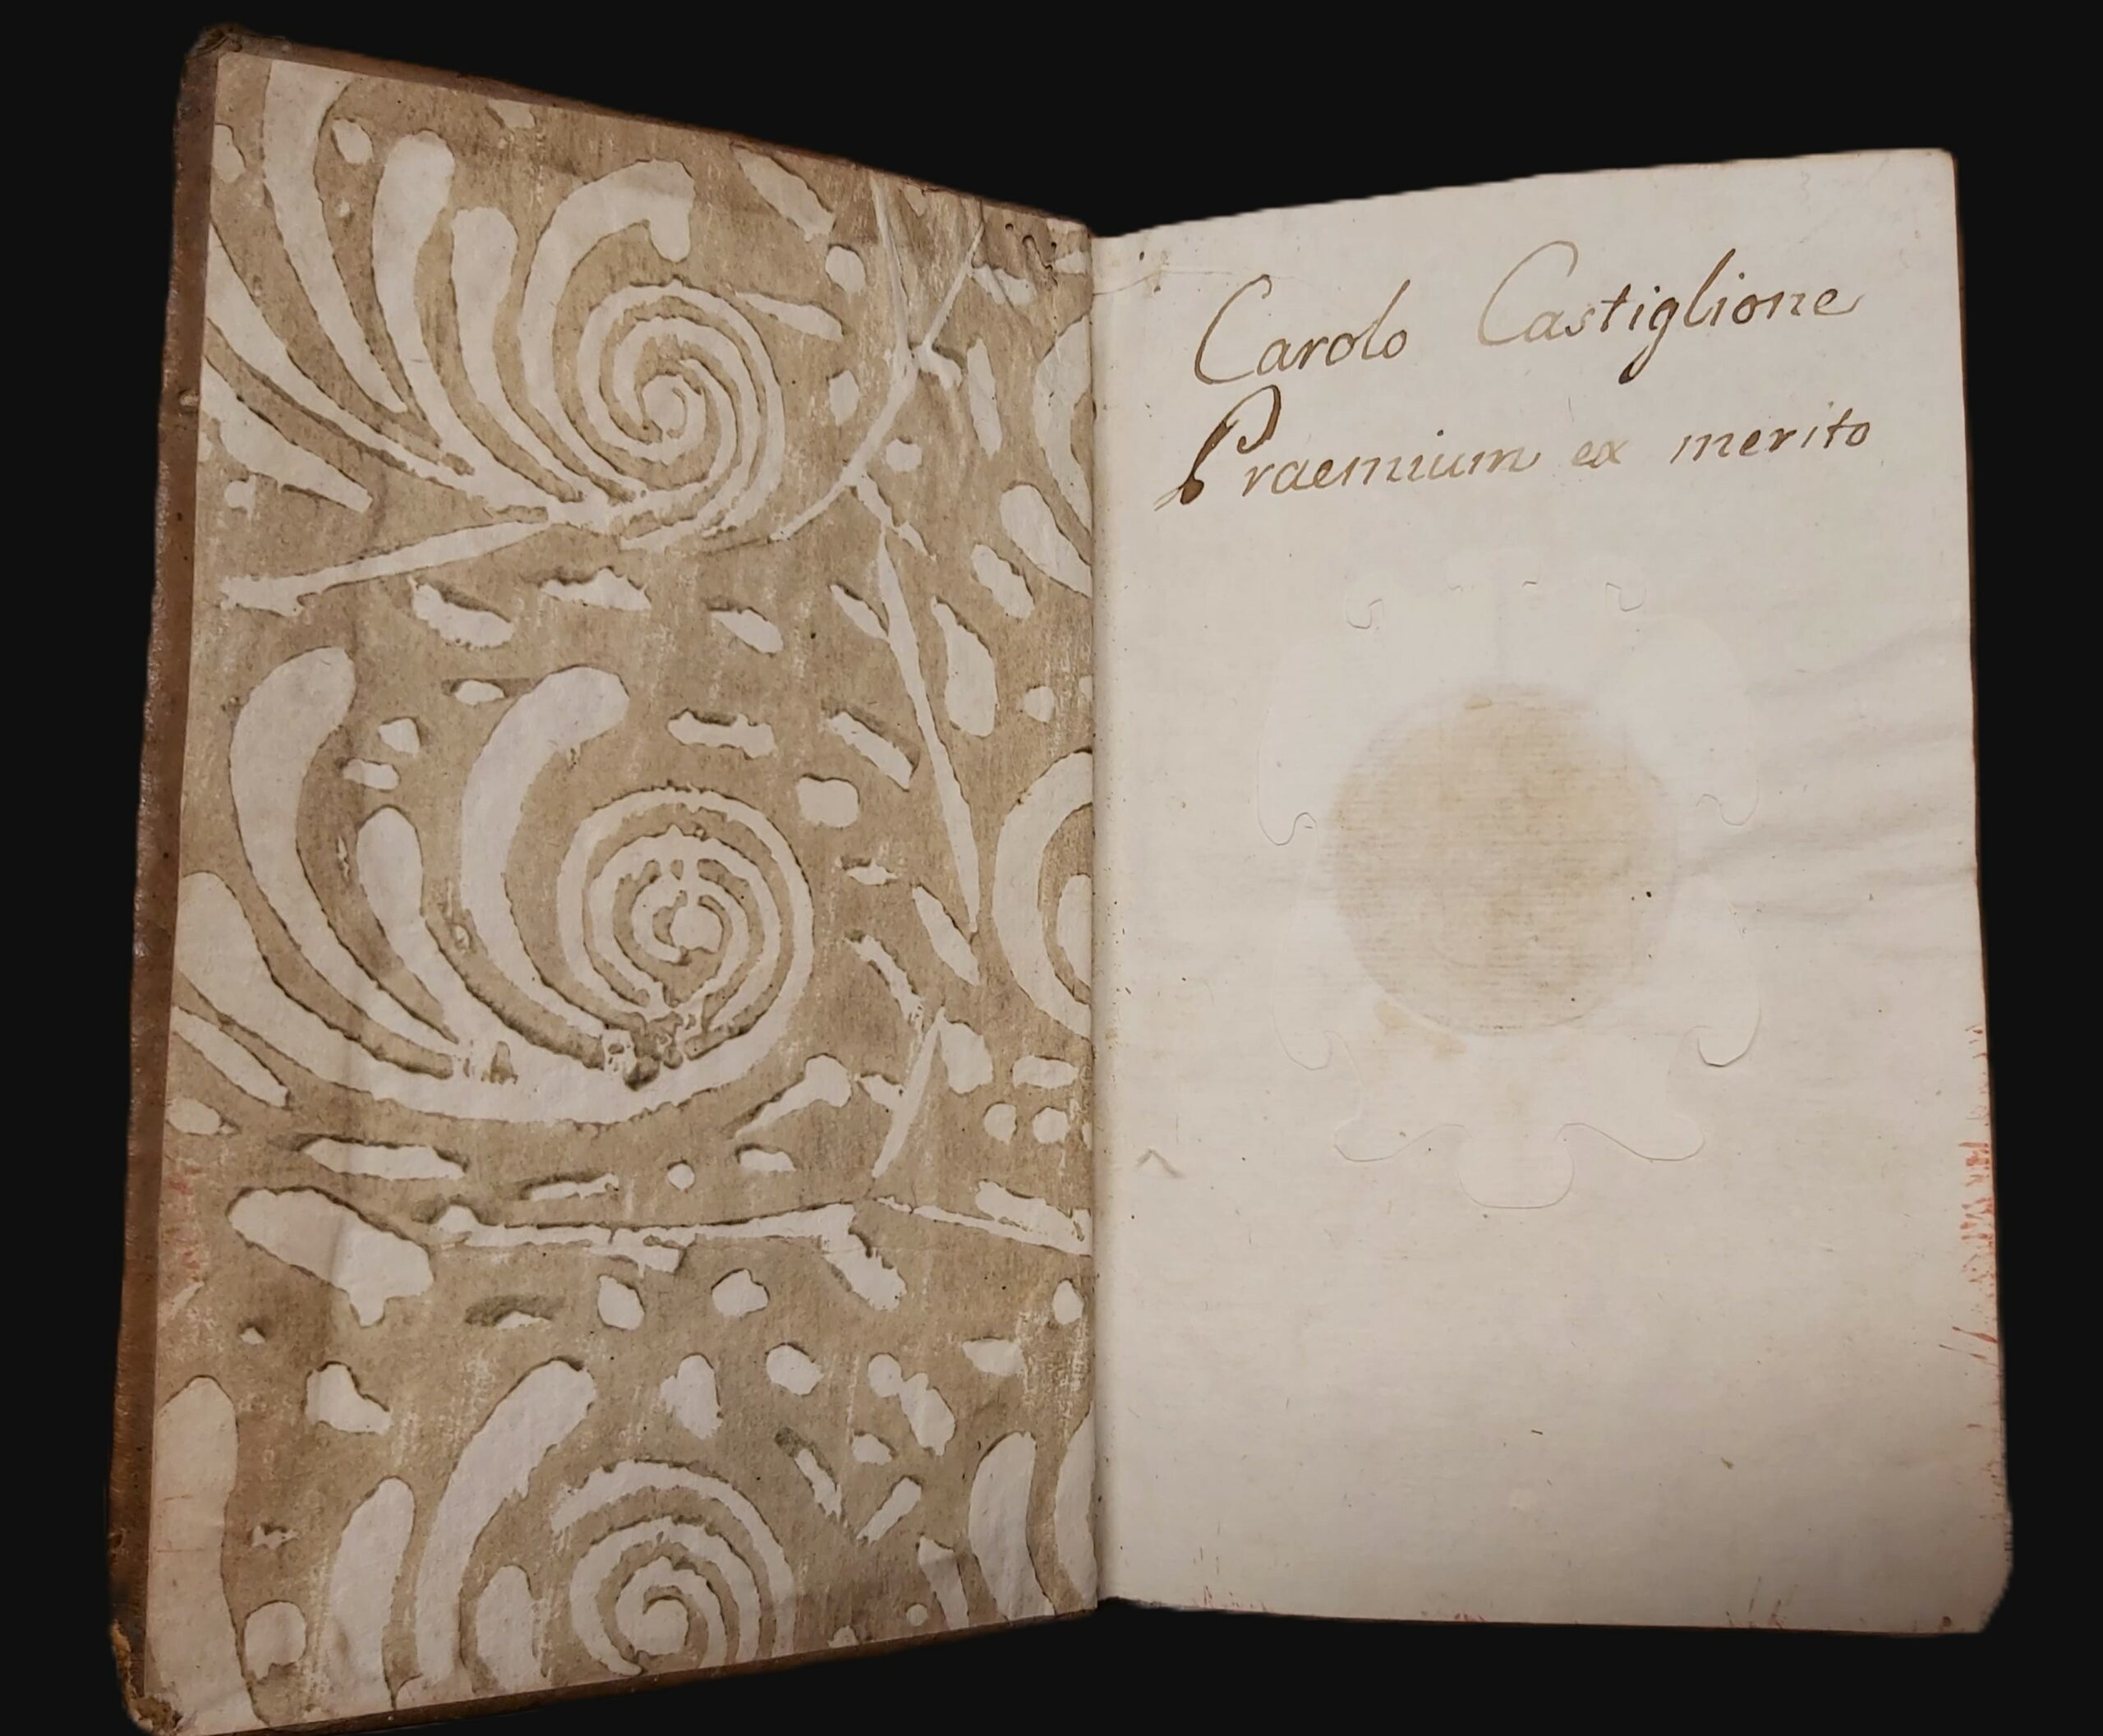 Carolo Castiglione
Praemium ex merito